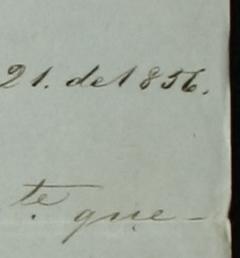 21. de 1856.
te. que-